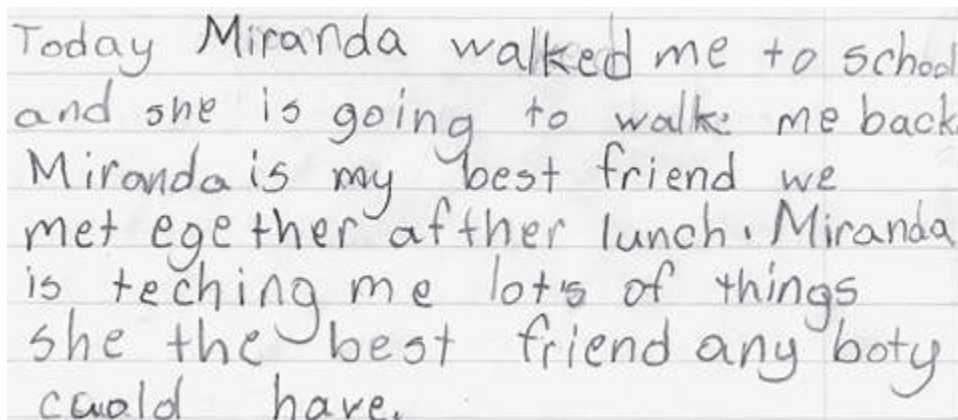 Today Miranda walked me to school
and she is going to walk me back
Miranda is my best friend we
met egether afther lunch. Miranda
is teching me lot's of things
she the best friend any boty
cauold have.